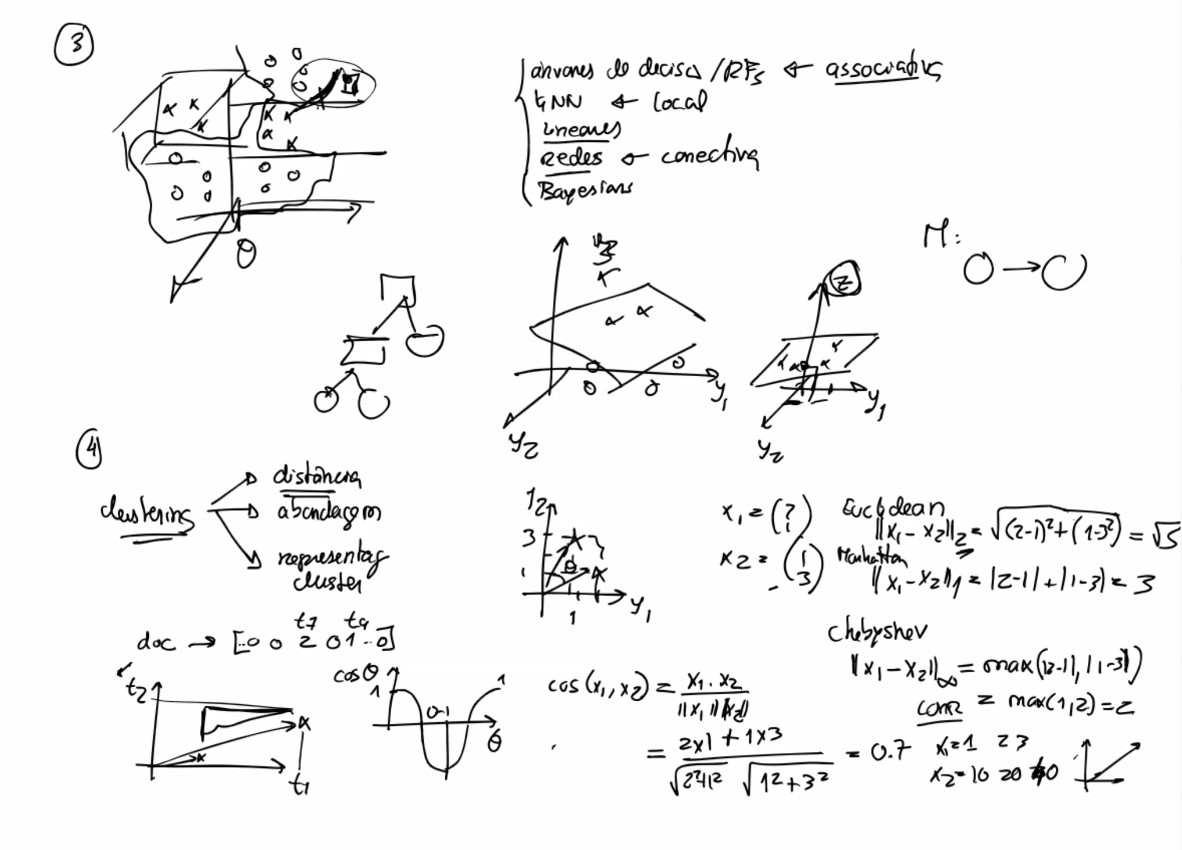 3
árvores de decisão / RFs ← associativas
kNN ← local
lineares
redes ← conectiva
Bayesians
θ
y3
z
M:
y1
y1
y2
y2
4
clustering
distância
abordagem
representaç
cluster
y2
3
1
θ
1
y1
x1 = (2 1)
x2 = (1 3)
Euclidean
||x1 - x2||2 = √(2-1)²+(1-3²) = √5
Manhattan
||x1 - x2||1 = |2-1| + |1-3| = 3
Chebyshev
||x1 - x2||∞ = max(|2-1|, |1-3|)
= max(1,2) = 2
corr
t7 t9
doc → [..0 0 2 0 1 ..0]
t2
t1
cos θ
1
0-1
1
θ
cos(x1, x2) = x1 . x2 / ||x1|| ||x2||
= 2x1 + 1x3 / √2²+1² √1²+3² = 0.7
x1=1 2 3
x2=10 20 40